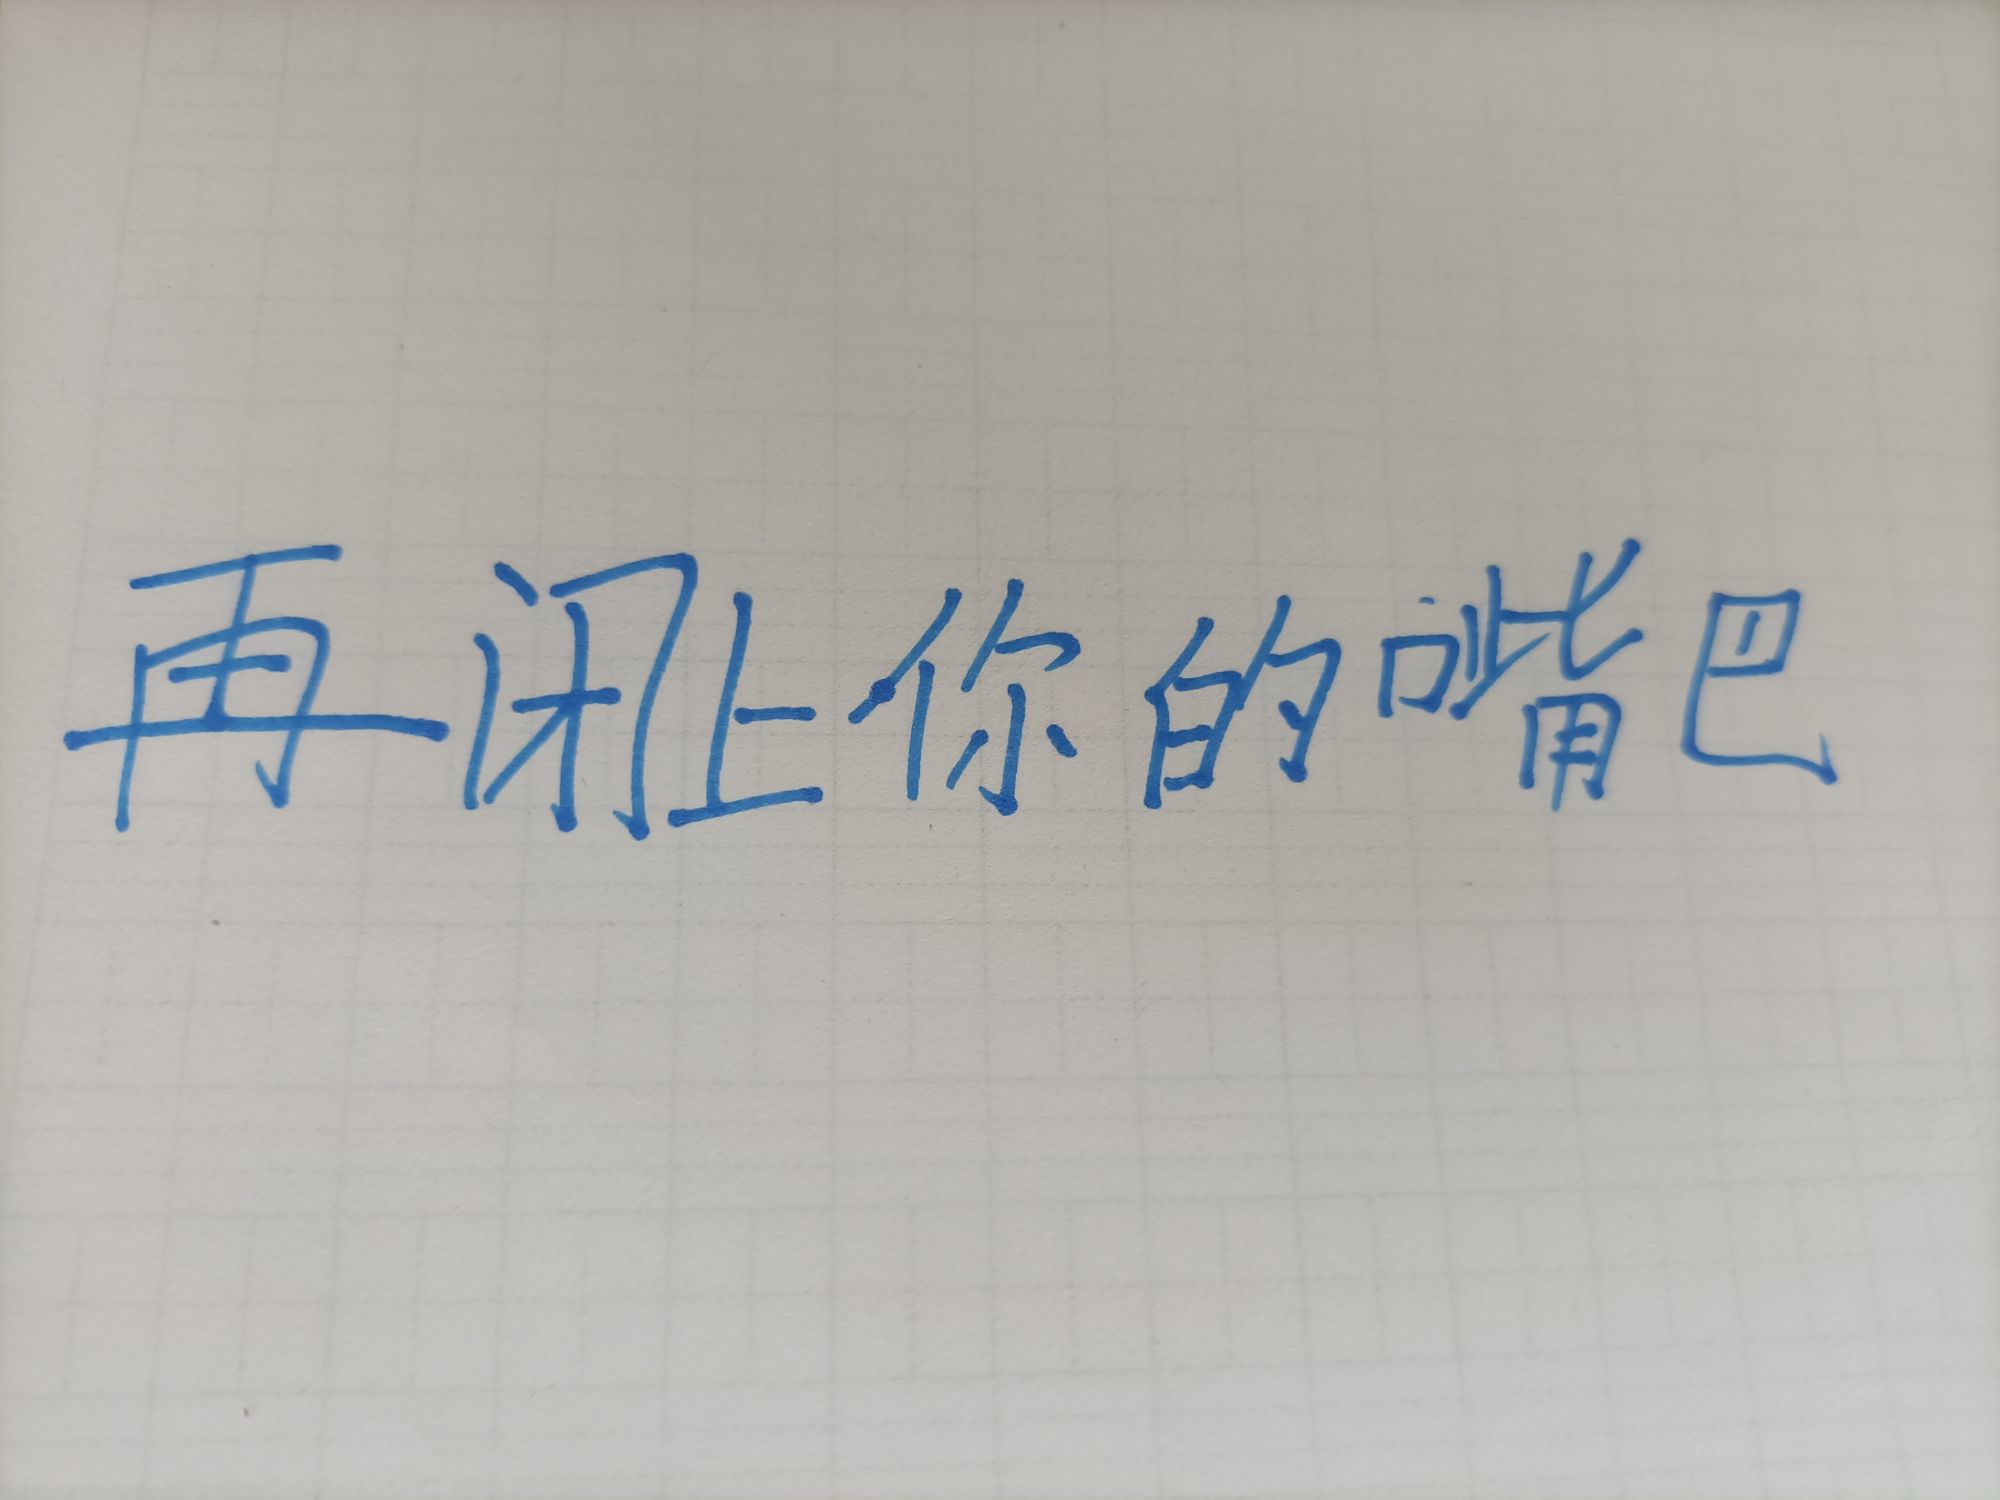 再闭上你的嘴巴